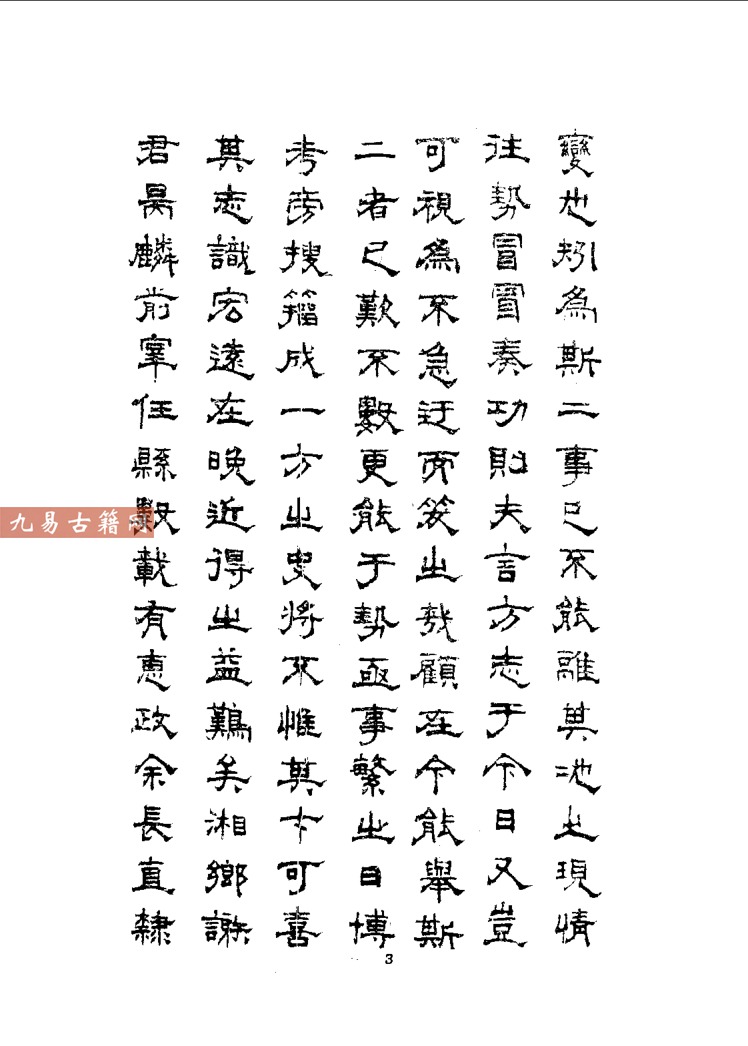 變也矧為斯二事已不能離其地之現情
往勢冒冒奏功則夫言方志于今日又豈
可視為不急迂而笑之哉顧在今能舉斯
二者已歎不數更能于勢亟事繁之日博
考旁搜籀成一方之史將不惟其才可喜
其志識宏遠在晚近得之益難矣湘鄉謝
君昺麟前宰任縣數載有惠政余長直隸
九易古籍
3